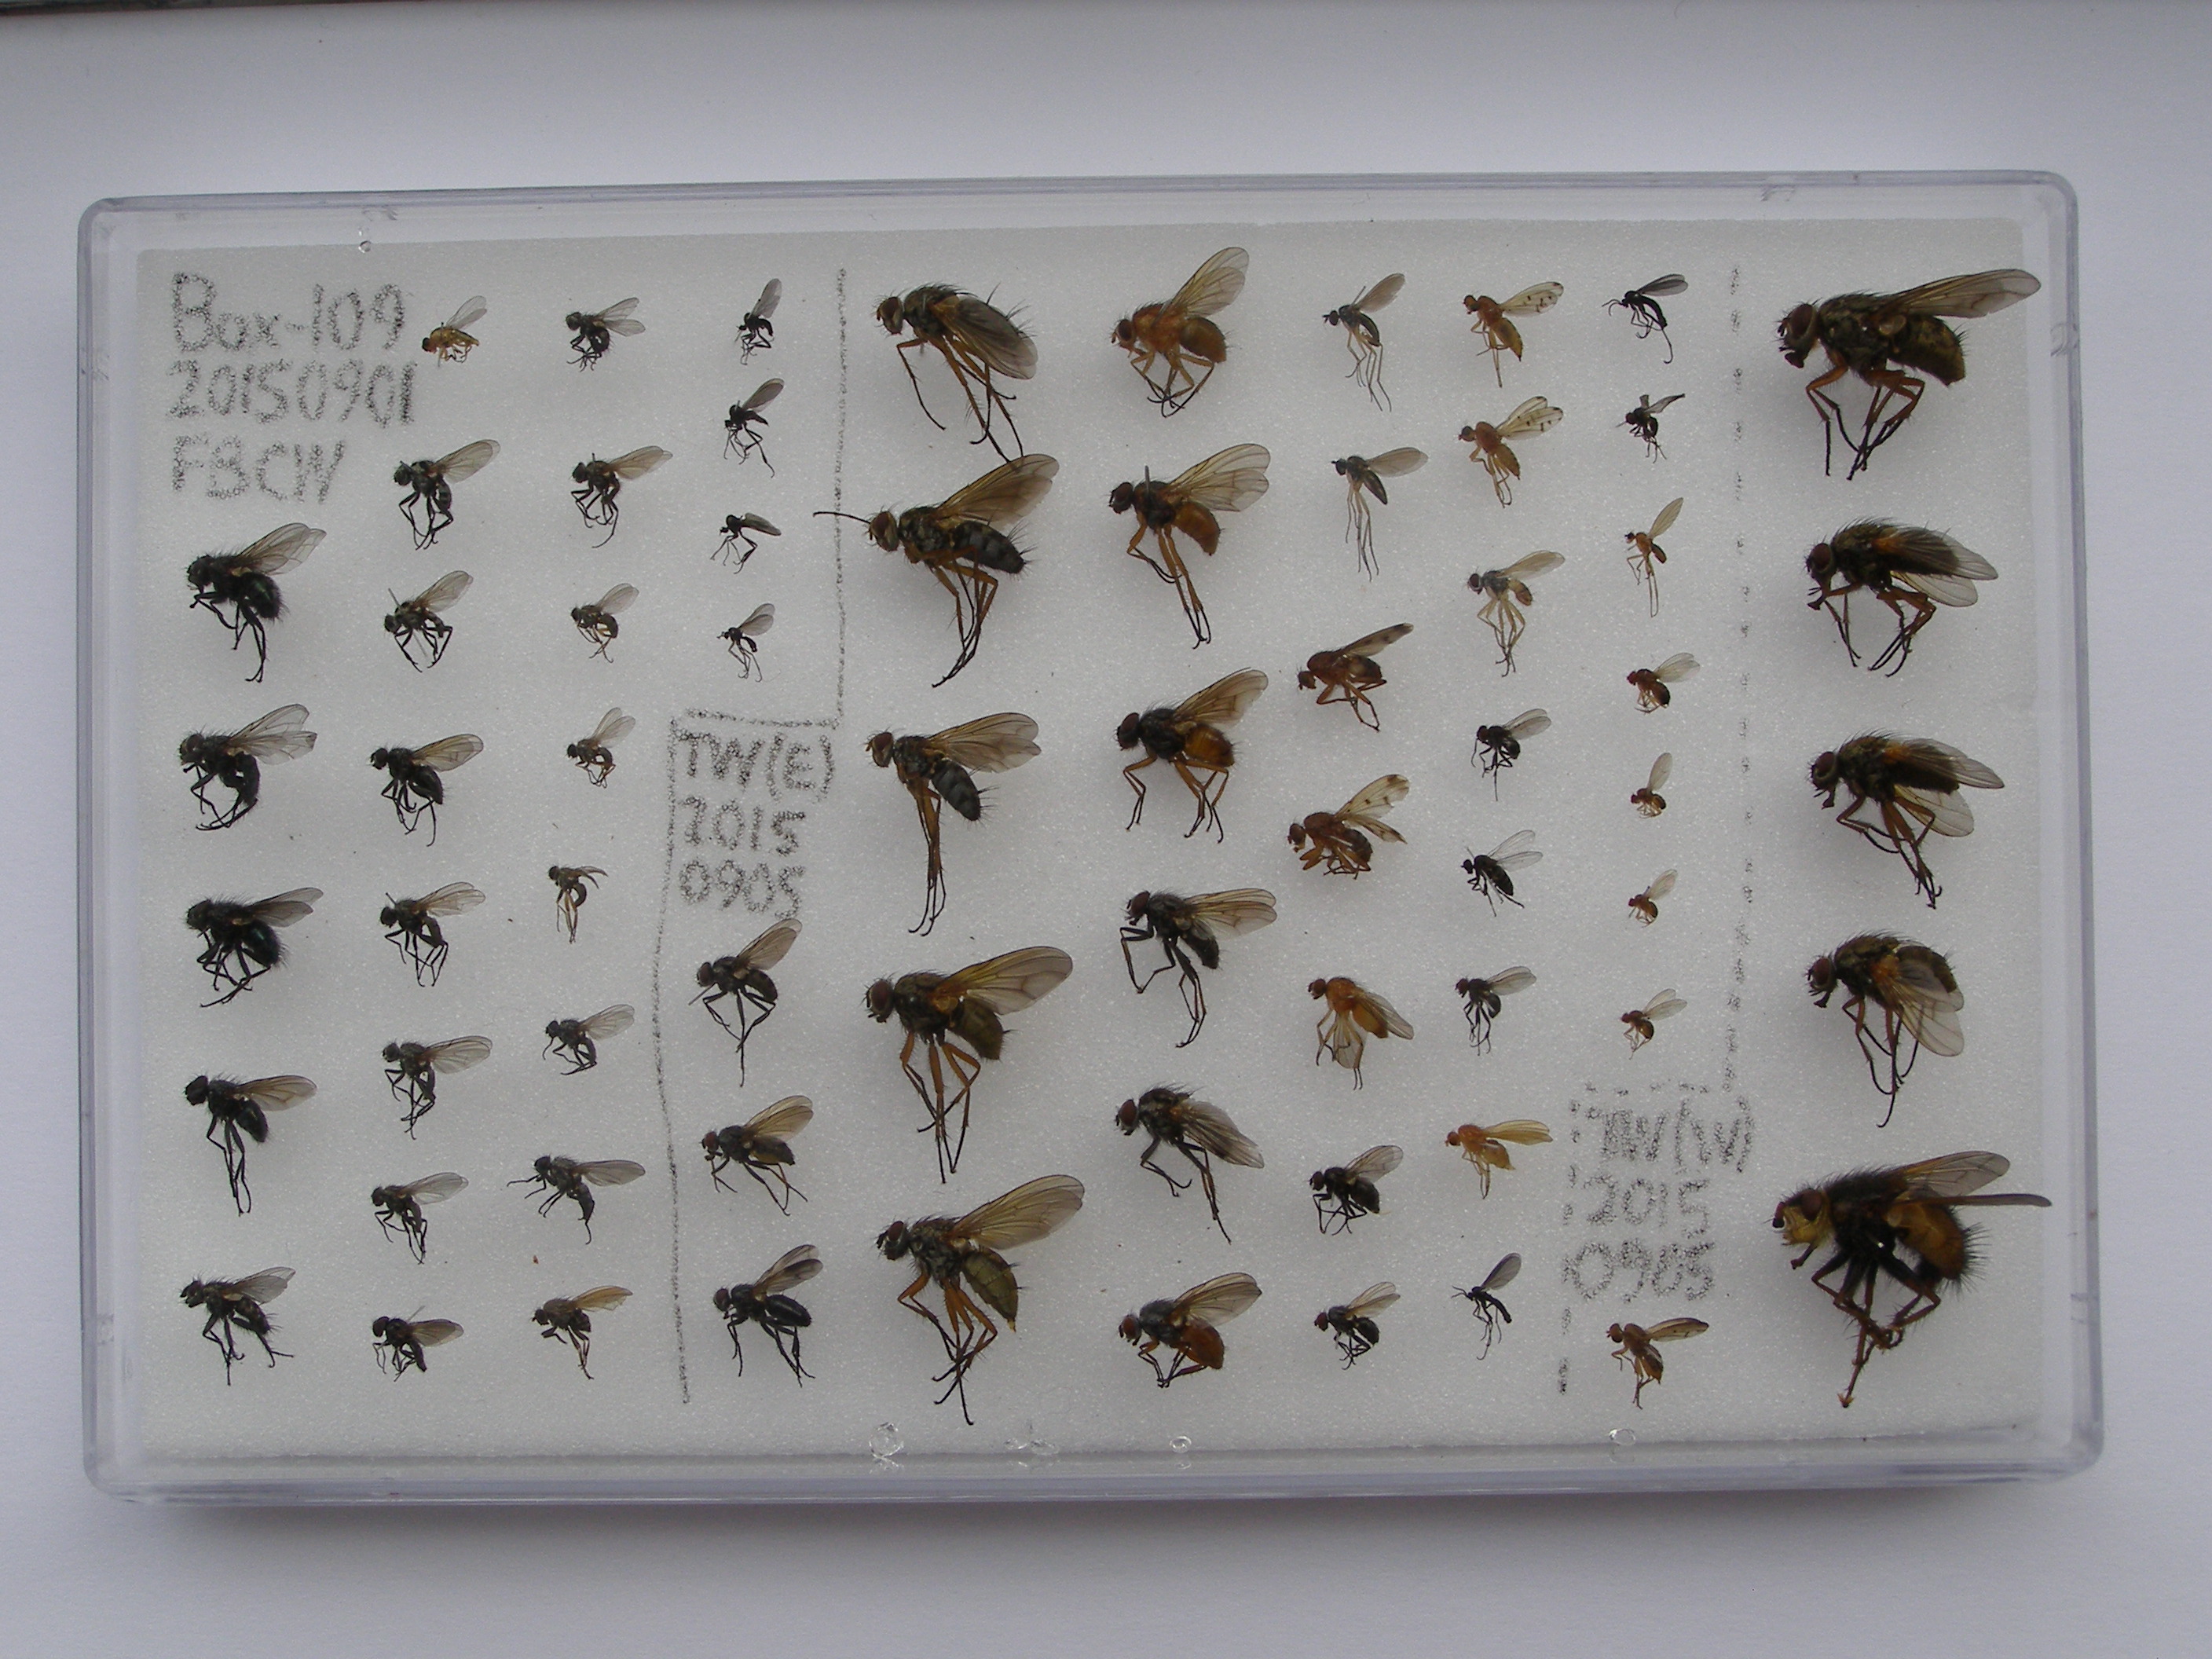 Box-109
20150901
FBCW
TW(E)
2015
0905
TW(W)
2015
0905